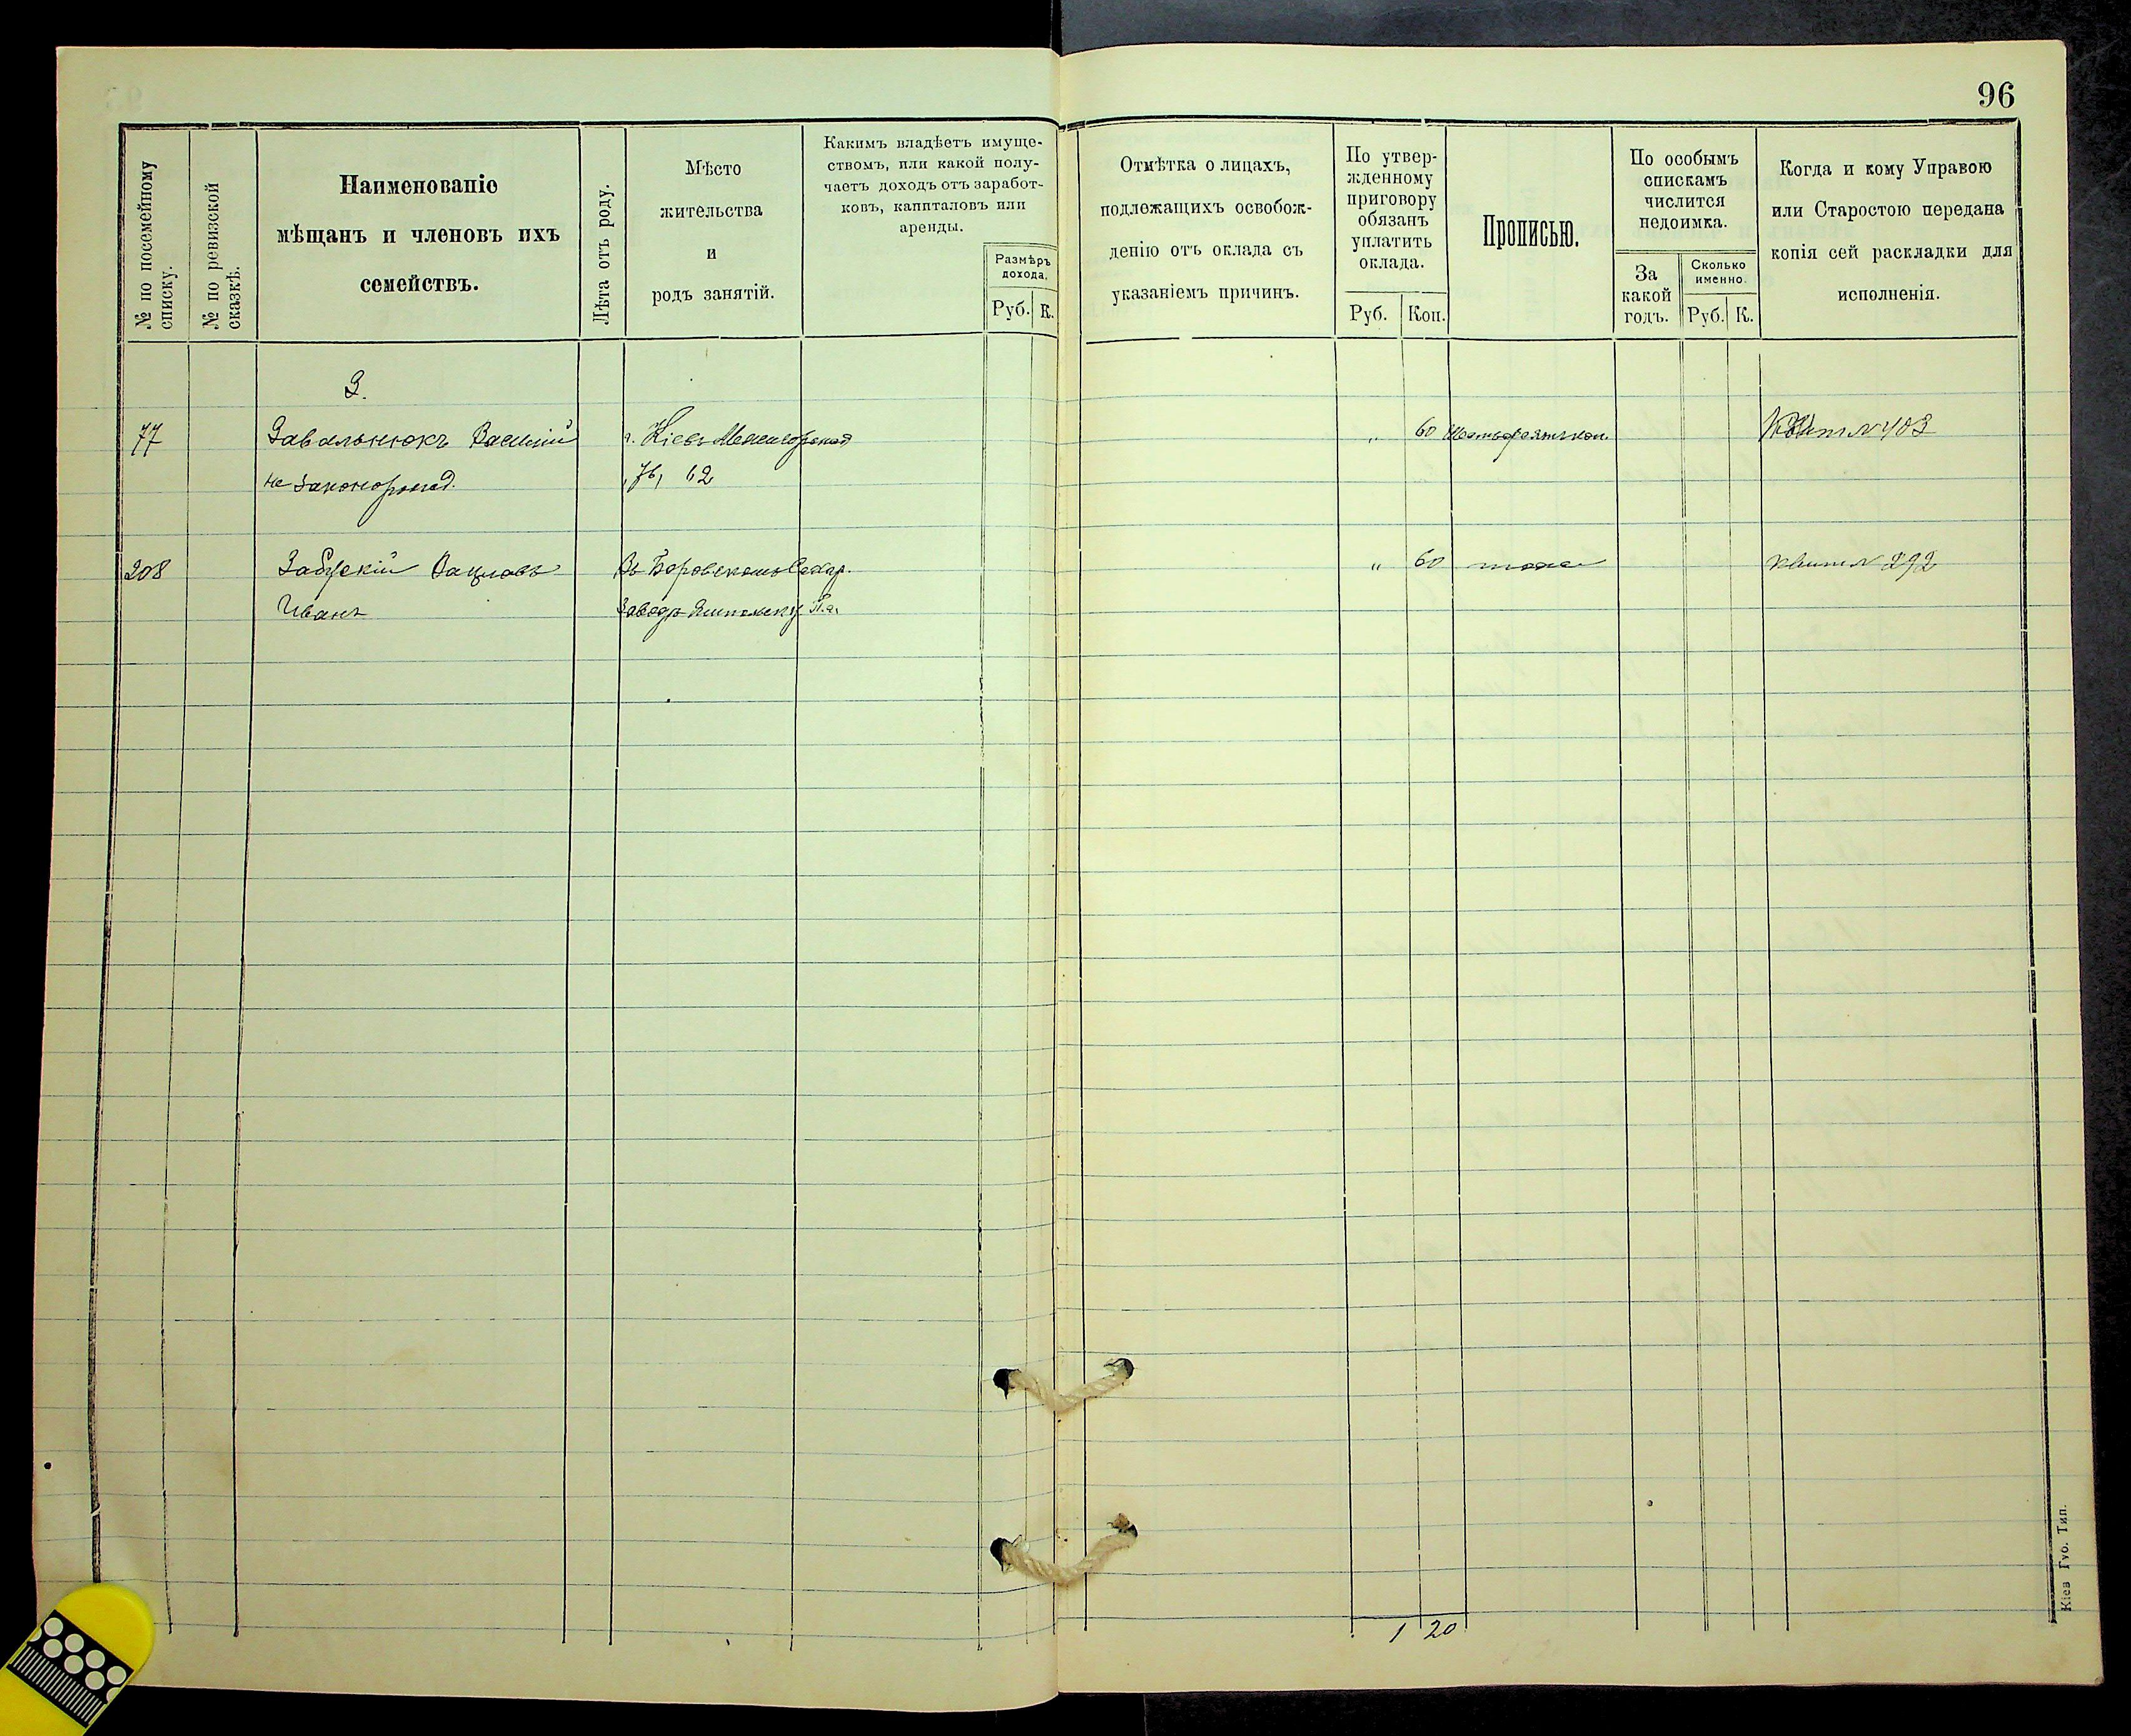 96
№ по посемейному списку.
№ по ревизской сказкѣ.
Наименованіе
мѣщанъ и членовъ ихъ
семействъ.
Лѣта отъ роду.
Мѣсто
жительства
и
родъ занятій.
Какимъ владѣетъ имуще-
ствомъ, или какой полу-
чаетъ доходъ отъ заработ-
ковъ, капиталовъ или
аренды.
Размѣръ
дохода.
Руб. К.
Отмѣтка о лицахъ,
подлежащихъ освобож-
денію отъ оклада съ
указаніемъ причинъ.
По утвер-
жденному
приговору
обязанъ
уплатить
оклада.
Руб. Коп.
Прописью.
По особымъ
спискамъ
числится
недоимка.
За
какой
годъ.
Сколько
именно.
Руб. К.
Когда и кому Управою
или Старостою передана
копія сей раскладки для
исполненія.
З.
77 Завальнюкъ Василій г. Кіевъ Межигорская „ 60 Шестьдесятъ коп. Квит № 403
не законорожд. 62
208 Забускій Вацлавъ Въ Боровскомъ Сахар. „ 60 тоже квит № 292
Иванъ Заводѣ
1 20
Кіев Губ. Тип.